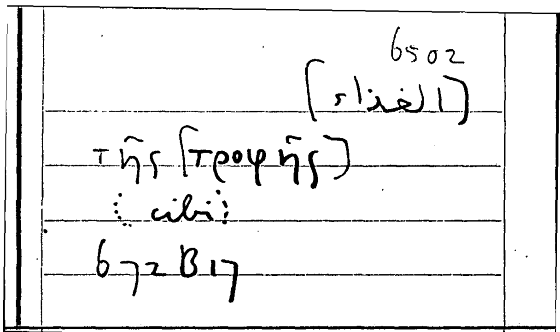 6502
[الغذاء]
τῆς [τροφῆς]
(cibi)
672 B 17